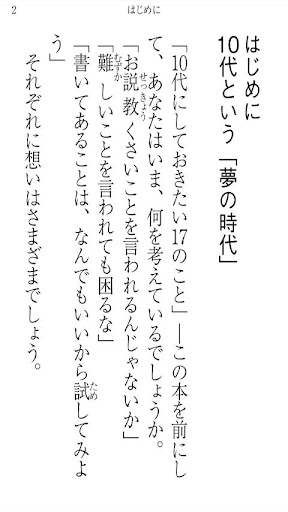 2
はじめに
はじめに
10代という「夢の時代」
「10代にしておきたい17のこと」―この本を前にし
て、あなたはいま、何を考えているでしょうか。
「お説教くさいことを言われるんじゃないか」
せっきょう
「難しいことを言われても困るな」
むずか
「書いてあることは、なんでもいいから試してみよ
ため
う」
それぞれに想いはさまざまでしょう。